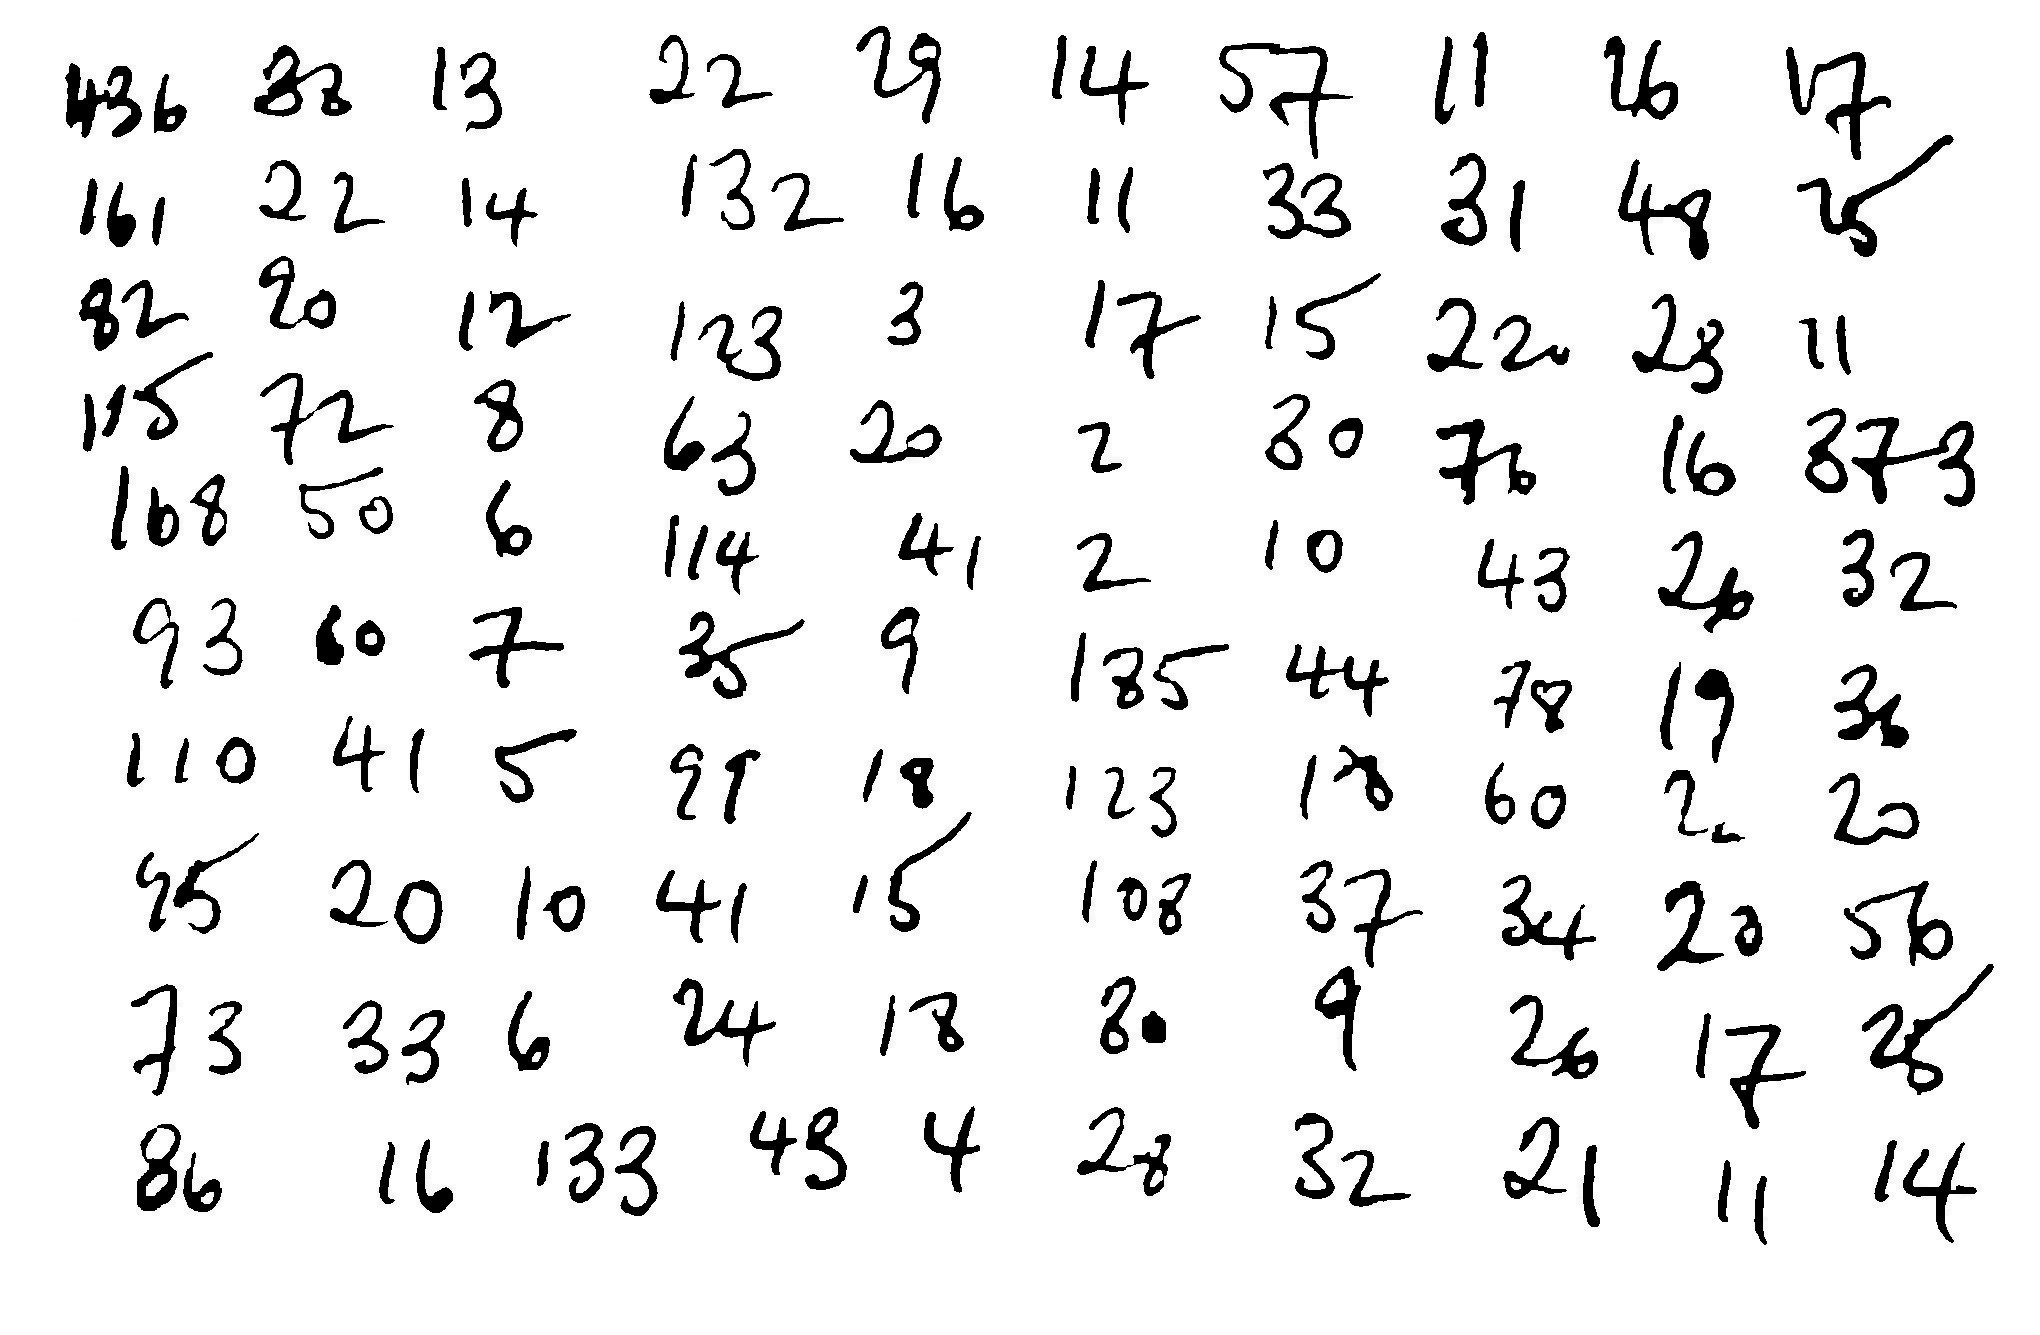 436 38 13 22 29 14 57 11 26 17
161 22 14 132 16 11 33 31 48 25
82 20 12 123 3 17 15 220 28 11
115 72 8 63 20 2 30 76 16 373
168 50 6 114 41 2 10 43 26 32
93 60 7 35 9 185 44 78 19 36
110 41 5 99 18 123 18 60 20
95 20 10 41 15 108 37 34 20 56
73 33 6 24 18 80 9 26 17 25
86 16 133 43 4 28 32 21 11 14